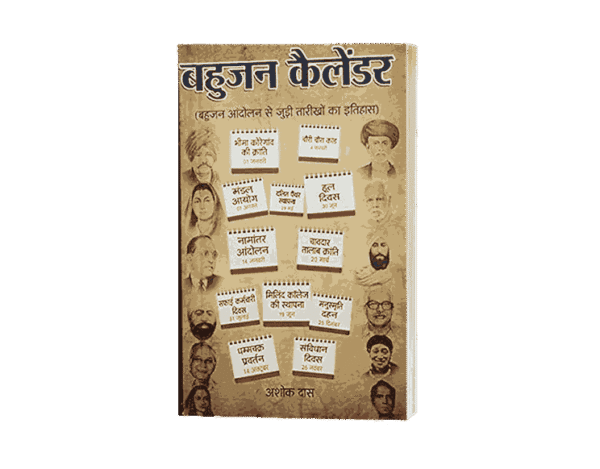 बहुजन कैलेंडर
(बहुजन आंदोलन से जुड़ी तारीखों का इतिहास)
भीमा कोरेगांव
की क्रांति
01 जनवरी
चौरी चौरा कांड
4 फरवरी
मंडल
आयोग
दलित पैंथर
स्थापना
29 मई
हूल
दिवस
30 जून
नामांतर
आंदोलन
14 जनवरी
चावदार
तालाब क्रांति
20 मार्च
सफाई कर्मचारी
दिवस
31 जुलाई
मिलिंद कॉलेज
की स्थापना
19 जून
मनुस्मृति
दहन
25 दिसंबर
धम्मचक्र
प्रवर्तन
14 अक्टूबर
संविधान
दिवस
26 नवंबर
अशोक दास